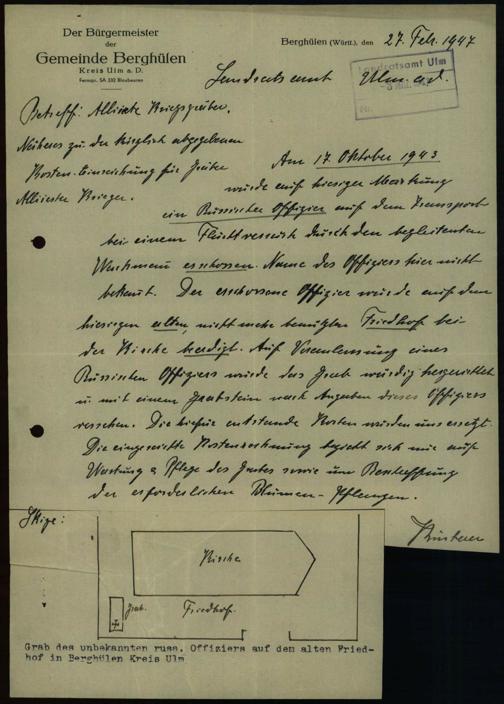 Der Bürgermeister
der
Gemeinde Berghülen
Kreis Ulm a. D.
Fernspr. SA 332 Blaubeuren
Berghülen (Württ.), den 27. Febr. 1947
Landratsamt Ulm
Landratsamt Ulm a.d.
Betreff: Alliierte Kriegsgräber.
Näheres zu der kürzlich abgegebenen
Kosten-Einreichung für Gräber
Alliierter Krieger.
Am 17. Oktober 1943
wurde auf hiesiger Markung
ein Russischer Offizier auf dem Transport
bei einem Fluchtversuch durch den begleitenden
Wachmann erschossen. Name des Offiziers hier nicht
bekannt. Der erschossene Offizier wurde auf dem
hiesigen alten, nicht mehr benutzten Friedhof bei
der Kirche beerdigt. Auf Veranlassung eines
Russischen Offiziers wurde das Grab würdig hergerichtet
u. mit einem Grabstein nach Angaben dieses Offiziers
versehen. Die hiefür entstandene Kosten wurden uns ersetzt.
Die eingereichte Kostenrechnung bezieht sich nur auf
Wartung & Pflege des Grabes sowie um Beschaffung
der erforderlichen Blumen-Pflanzen.
Skize:
Kirche
Grab.
Friedhof.
Grab des unbekannten russ. Offiziers auf dem alten Fried-
hof in Berghülen Kreis Ulm